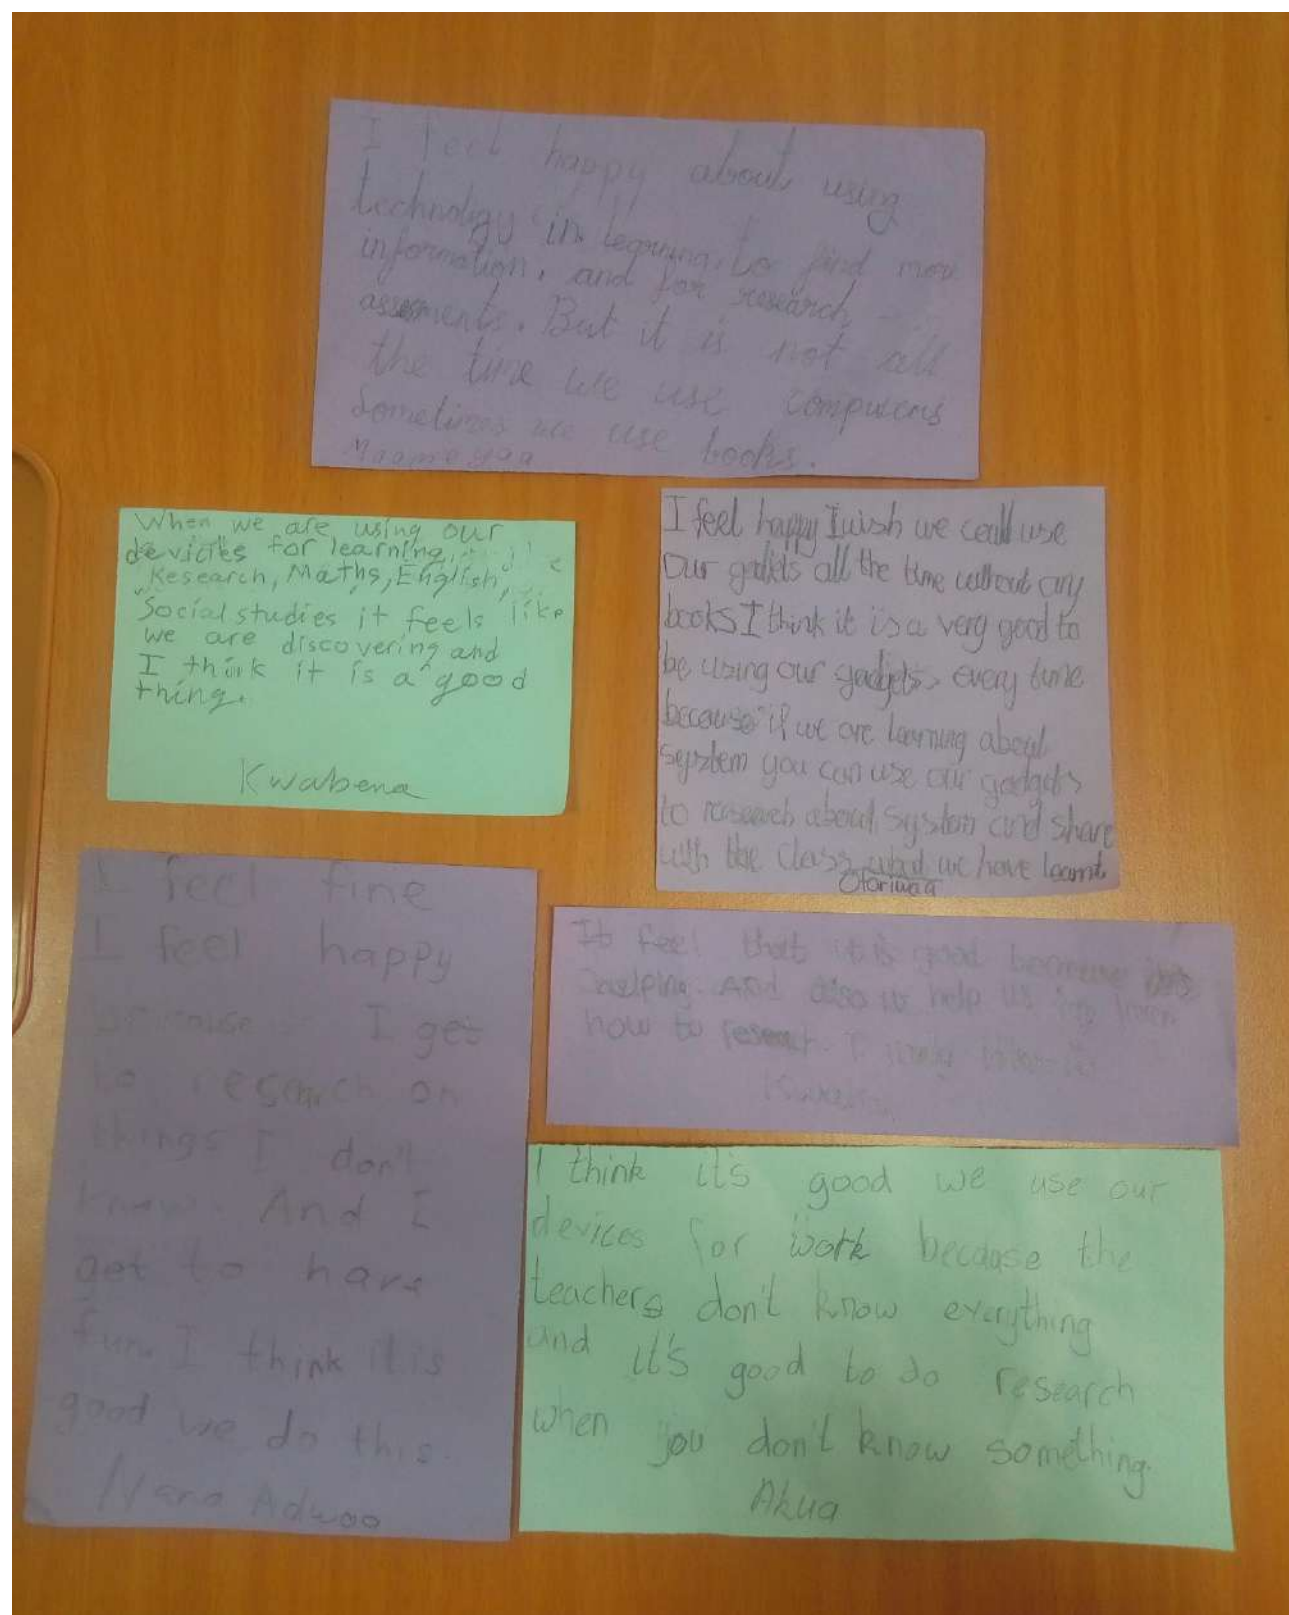 I feel happy about using
technology in learning, to find mor
information, and for research,
assesments. But it is not all
the time we use computers
Sometimes we use books.
Maame yaa
When we are using our
devicies for learning,
Research, Maths, English,
Social studies it feels like
we are discovering and
I think it is a good
thing.
Kwabena
I feel happy I wish we could use
Our gadgets all the time without any
books I think it is a very good to
be using our gadgets, every time
because if we are learning about
system you can use our gadgets
to research about system and share
with the class what we have learnt
Oforiwaa
I feel fine
I feel happy
because I get
to research on
things I don't
know. And I
get to have
fun. I think it is
good we do this.
Nana Adwoa
It feel that it is good because its
helping. And also it help us
how to research. I
I think it's good we use our
devices for work becaase the
teachers don't know everything
and it's good to do research
when you don't know something.
Akua